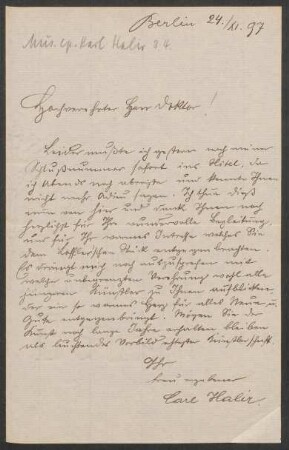 Berlin 24./XI. 97
Mus. ep. Karl Halir 84.
Hochverehrter Herr Doktor!
Leider mußte ich gestern nach meiner
Schlußnummer sofort ins Hôtel, da
ich Abends noch abreiste und konnte Ihnen
nicht mehr Adieu sagen. Ich thue dieß
nun von hier und danke Ihnen noch
herzlichst für Ihr wundervolle Begleitung
und für Ihr warmes Interesse welches Sie
dem Löfflerschen Stück entgegen brachten.
Es drängt mich noch auszusprechen mit
welcher unbegrenzten Verehrung wohl alle
jüngeren Künstler zu Ihnen aufblicken,
der ein so warmes Herz für alles Neue u.
Gute entgegenbringt. Mögen Sie der
Kunst noch lange Jahre erhalten bleiben
als leuchtendes Vorbild echtester Künstlerschaft
Ihr
treu ergebener
Carl Halir.